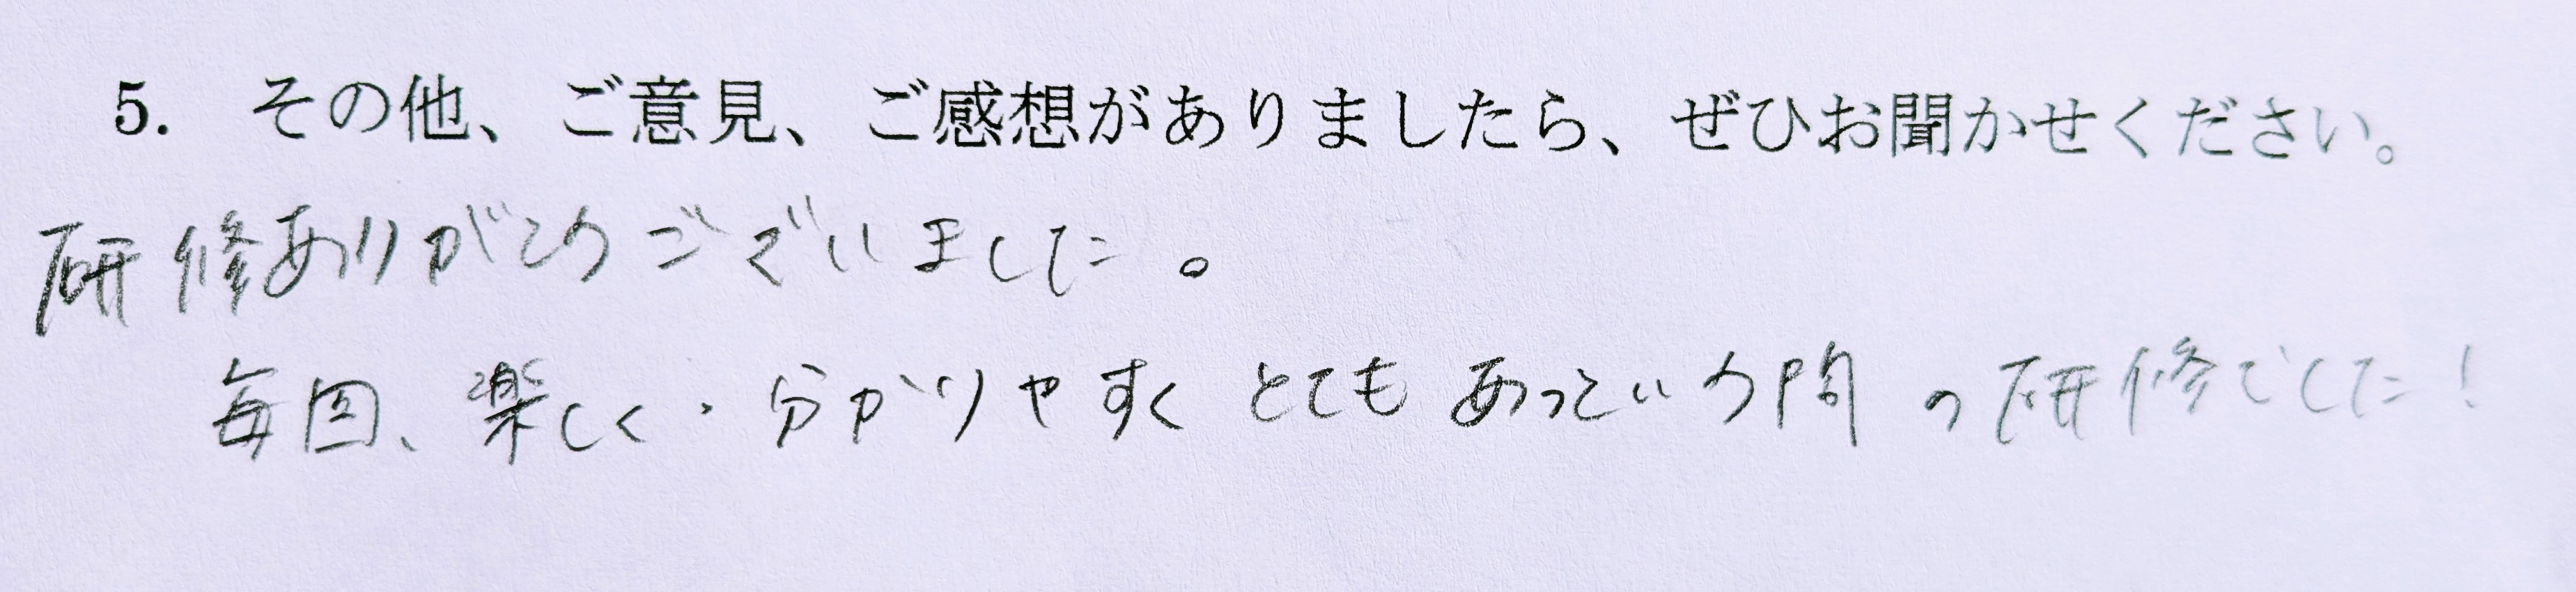 5. その他、ご意見、ご感想がありましたら、ぜひお聞かせください。
研修ありがとうございました。
毎回、楽しく・分かりやすくとてもあっという間の研修でした！